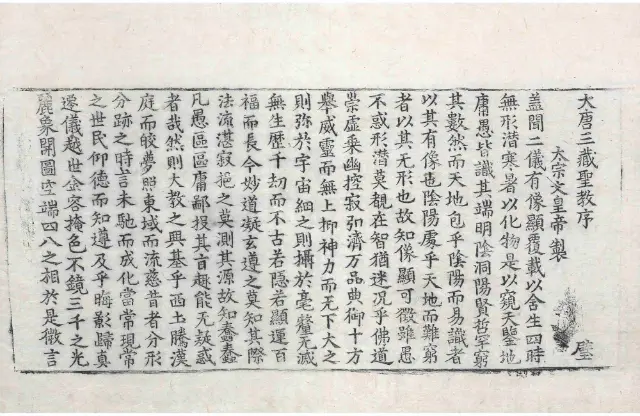 大唐三藏聖教序
太宗文皇帝製
蓋聞二儀有像顯覆載以含生四時
無形潜寒暑以化物是以窺天鑒地
庸愚皆識其端明陰洞陽賢哲罕窮
其數然而天地包乎陰陽而易識者
以其有像也陰陽處乎天地而難窮
者以其无形也故知像顯可徵雖愚
不惑形潜莫覩在智猶迷况乎佛道
崇虛乗幽控寂弘濟万品典御十方
舉威靈而無上抑神力而无下大之
則弥於宇宙細之則攝於毫釐无滅
無生歷千劫而不古若隱若顯運百
福而長今妙道凝玄遵之莫知其際
法流湛寂挹之莫測其源故知蠢蠢
凡愚區區庸鄙投其旨趣能无疑惑
者哉然則大教之興基乎西土騰漢
庭而皎夢照東域而流慈昔者分形
分跡之時言未馳而成化當常現常
之世民仰德而知遵及乎晦影歸真
遷儀越世金容掩色不鏡三千之光
麗象開圖空端四八之相於是微言
璧